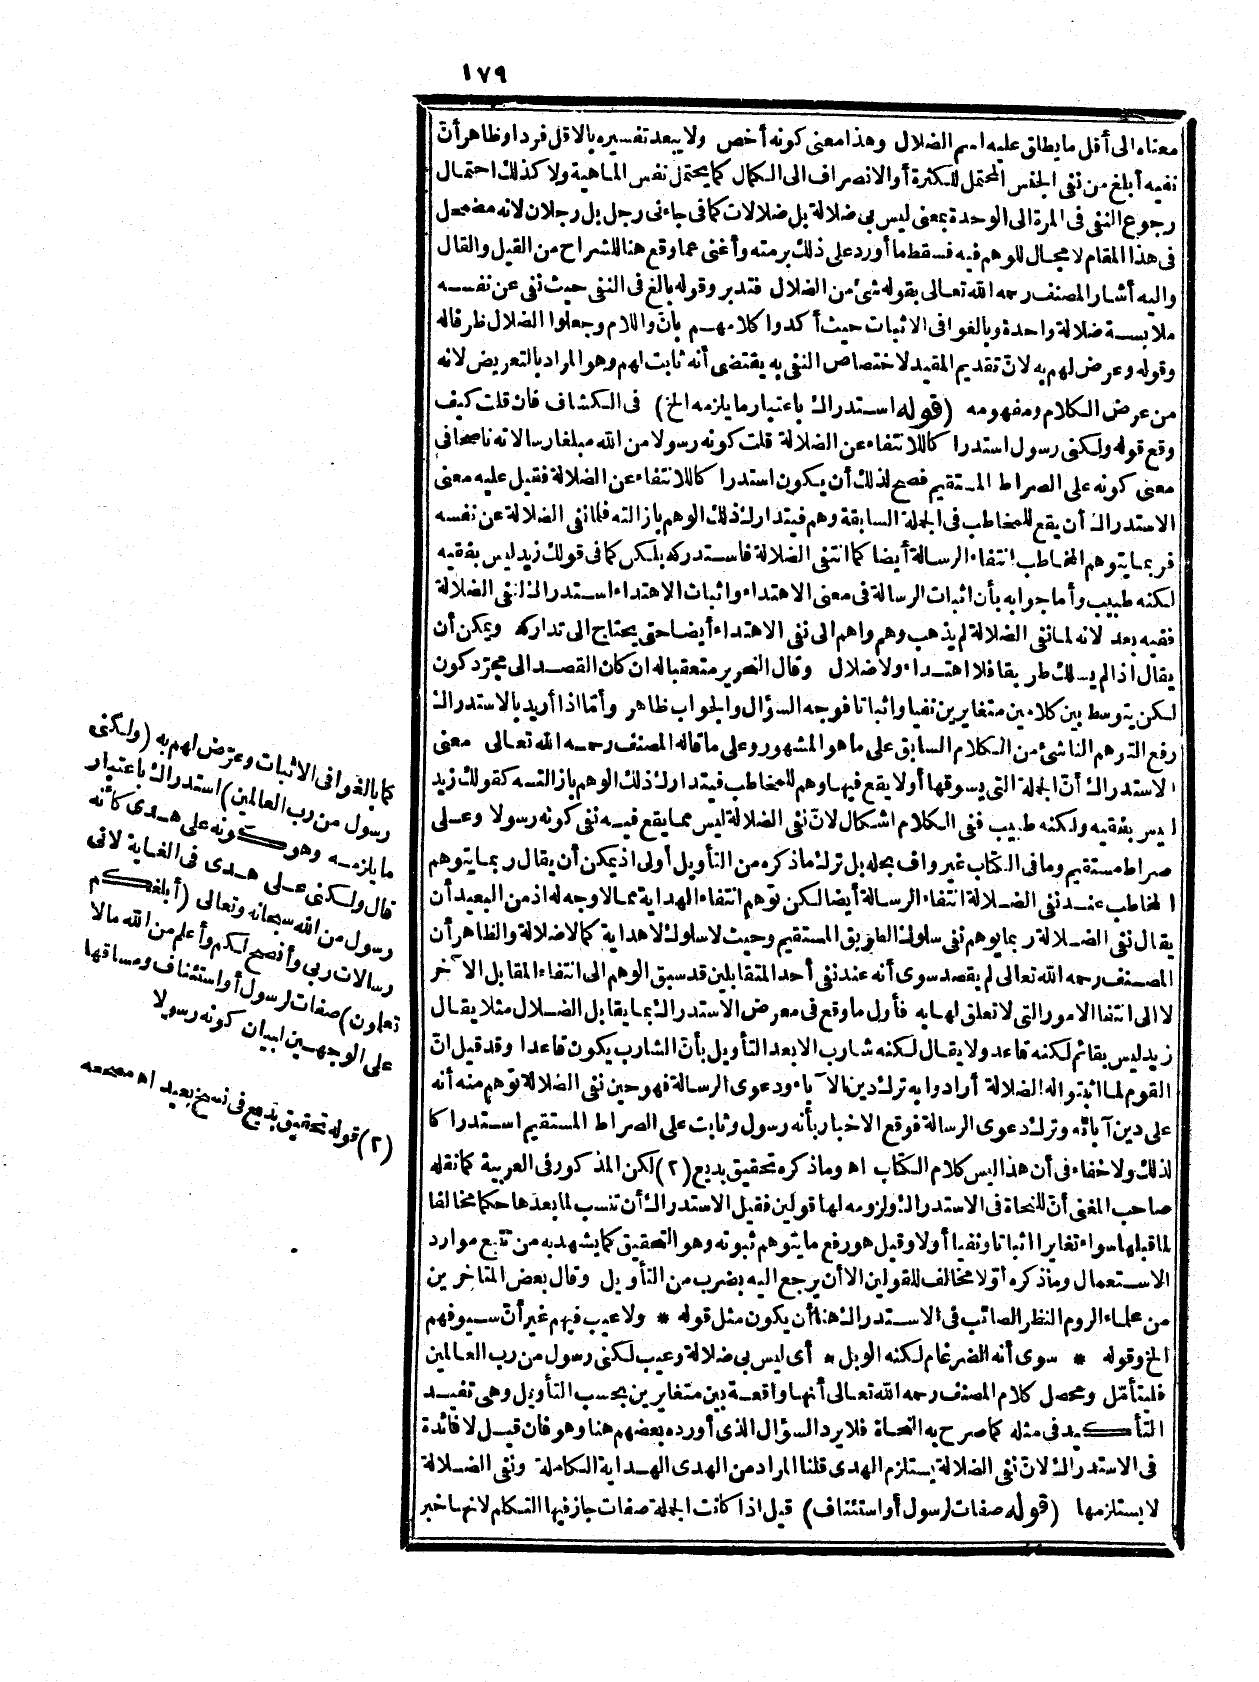 ١٧٩
معناه الى أقل ما يطلق عليه اسم الضلال وهذا معنى كونه أخص ولا يبعد تفسيره بالاقل فردا وظاهر أنّ
نفيه أبلغ من نفى الجنس المحتمل للكثرة أو الانصراف الى الكمال كما يحتمل نفس الماهية ولا كذلك احتمال
رجوع النفى فى المرة الى الوحدة بمعنى ليس بى ضلالة بل ضلالات كما فى جاءنى رجل بل رجلان لانه مضمحل
فى هذا المقام لا مجال للوهم فيه فسقط ما أورد على ذلك برمته وأغنى عما وقع هنا للشراح من القيل والقال
واليه أشار المصنف رحمه الله تعالى بقوله شئ من الضلال فتدبر وقوله بالغ فى النفى حيث نفى عن نفسه
ملابسة ضلالة واحدة وبالغوا فى الاثبات حيث أكدوا كلامهم بانّ واللام وجعلوا الضلال ظرفا له
وقوله وعرض لهم به لانّ تقديم المقيد لاختصاص النفى به يقتضى أنه ثابت لهم وهو المراد بالتعريض لانه
من عرض الكلام ومفهومه (قوله استدراك باعتبار ما يلزمه الخ) فى الكشاف فان قلت كيف
وقع قوله ولكنى رسول استدراكا للانتفاء عن الضلالة قلت كونه رسولا من الله مبلغا رسالاته ناصحا فى
معنى كونه على الصراط المستقيم فصح لذلك أن يكون استدراكا للانتفاء عن الضلالة فقيل عليه معنى
الاستدراك أن يقع للمخاطب فى الجملة السابقة وهم فيتدارك ذلك الوهم بازالته فلما نفى الضلالة عن نفسه
فربما يتوهم المخاطب انتفاء الرسالة أيضا كما انتفى الضلالة فاستدركه بلكن كما فى قولك زيد ليس بفقيه
لكنه طبيب وأما جوابه بأن اثبات الرسالة فى معنى الاهتداء واثبات الاهتداء استدراك لنفى الضلالة
ففيه بعد لانه لما نفى الضلالة لم يذهب وهم واهم الى نفى الاهتداء أيضا حتى يحتاج الى تداركه ويمكن أن
يقال اذا لم يسلك طريقا فلا اهتداء ولا ضلال وقال النحرير متعقبا له ان كان القصد الى مجرّد كون
لكن يتوسط بين كلامين متغايرين نفيا واثباتا فوجه السؤال والجواب ظاهر وأمّا اذا أريد بالاستدراك
رفع التوهم الناشئ من الكلام السابق على ما هو المشهور وعلى ما قاله المصنف رحمه الله تعالى معنى
الاستدراك أنّ الجملة التى يسوقها أولا يقع فيها وهم للمخاطب فيتدارك ذلك الوهم بازالته كقولك زيد
ليس بفقيه ولكنه طبيب ففى الكلام اشكال لانّ نفى الضلالة ليس مما يقع فيه نفى كونه رسولا وعلى
صراط مستقيم وما فى الكتاب غير واف بحله بل ترك ما ذكره من التأويل أولى اذ يمكن أن يقال ربما يتوهم
المخاطب عند نفى الضلالة انتفاء الرسالة أيضا لكن توهم انتفاء الهداية مما لا وجه له اذ من البعيد أن
يقال نفى الضلالة ربما يوهم نفى سلوك الطريق المستقيم وحيث لا سلوك لا هداية كما لا ضلالة والظاهر أن
المصنف رحمه الله تعالى لم يقصد سوى أنه عند نفى أحد المتقابلين قد سبق الوهم الى انتفاء المقابل الآخر
لا الى انتفا الامور التى لا تعلق لها به فأول ما وقع فى معرض الاستدراك بما يقابل الضلال مثلا يقال
زيد ليس بقائم لكنه قاعد ولا يقال لكنه شارب الا بعد التأويل بأنّ الشارب يكون قاعدا وقد قيل انّ
القوم لما اثبتوا له الضلالة أرادوا به ترك دين الآباء ودعوى الرسالة فهو حين نفى الضلالة توهم منه أنه
على دين آبائه وترك دعوى الرسالة فوقع الاخبار بأنه رسول وثابت على الصراط المستقيم استدراكا
لذلك ولا خفاء فى أن هذا ليس كلام الكتاب اه وما ذكره تحقيق بديع (٢) لكن المذكور فى العربية كما نقله
صاحب المغنى أنّ للنحاة فى الاستدراك ولزومه لها قولين فقيل الاستدراك أن تنسب لما بعدها حكما مخالفا
لما قبلها سواء تغايرا اثباتا ونفيا أولا وقيل هو رفع ما يتوهم ثبوته وهو التحقيق كما يشهد به من تتبع موارد
الاستعمال وما ذكره أوّلا مخالف للقولين الا أن يرجع اليه بضرب من التأويل وقال بعض المتأخرين
من علماء الروم النظر الصائب فى الاستدراك هنا أن يكون مثل قوله * ولا عيب فيهم غير أنّ سيوفهم
الخ وقوله * سوى أنه الضرغام لكنه الوبل * أى ليس بى ضلالة وعيب لكنى رسول من رب العالمين
فليتأمّل ومحصل كلام المصنف رحمه الله تعالى أنها واقعة بين متغايرين بحسب التأويل وهى تفيد
التأكيد فى مثله كما صرح به النحاة فلا يرد السؤال الذى أورده بعضهم هنا وهو فان قيل لا فائدة
فى الاستدراك لانّ نفى الضلالة يستلزم الهدى قلنا المراد من الهدى الهداية الكاملة ونفى الضلالة
لا يستلزمها (قوله صفات لرسول أو استئناف) قيل اذا كانت الجملة صفات جاز فيها التكلم لانها خبر
كما بالغوا فى الاثبات وعرّض لهم به (ولكنى
رسول من رب العالمين) استدراك باعتبار
ما يلزمه وهو كونه على هدى كأنه
قال ولكنى على هدى فى الغاية لانى
رسول من الله سبحانه وتعالى (أبلغكم
رسالات ربى وأنصح لكم وأعلم من الله مالا
تعلمون) صفات لرسول أو استئناف ومساقها
على الوجهين لبيان كونه رسولا
(٢) قوله تحقيق بديع فى نسخ بعيد اه مصححه